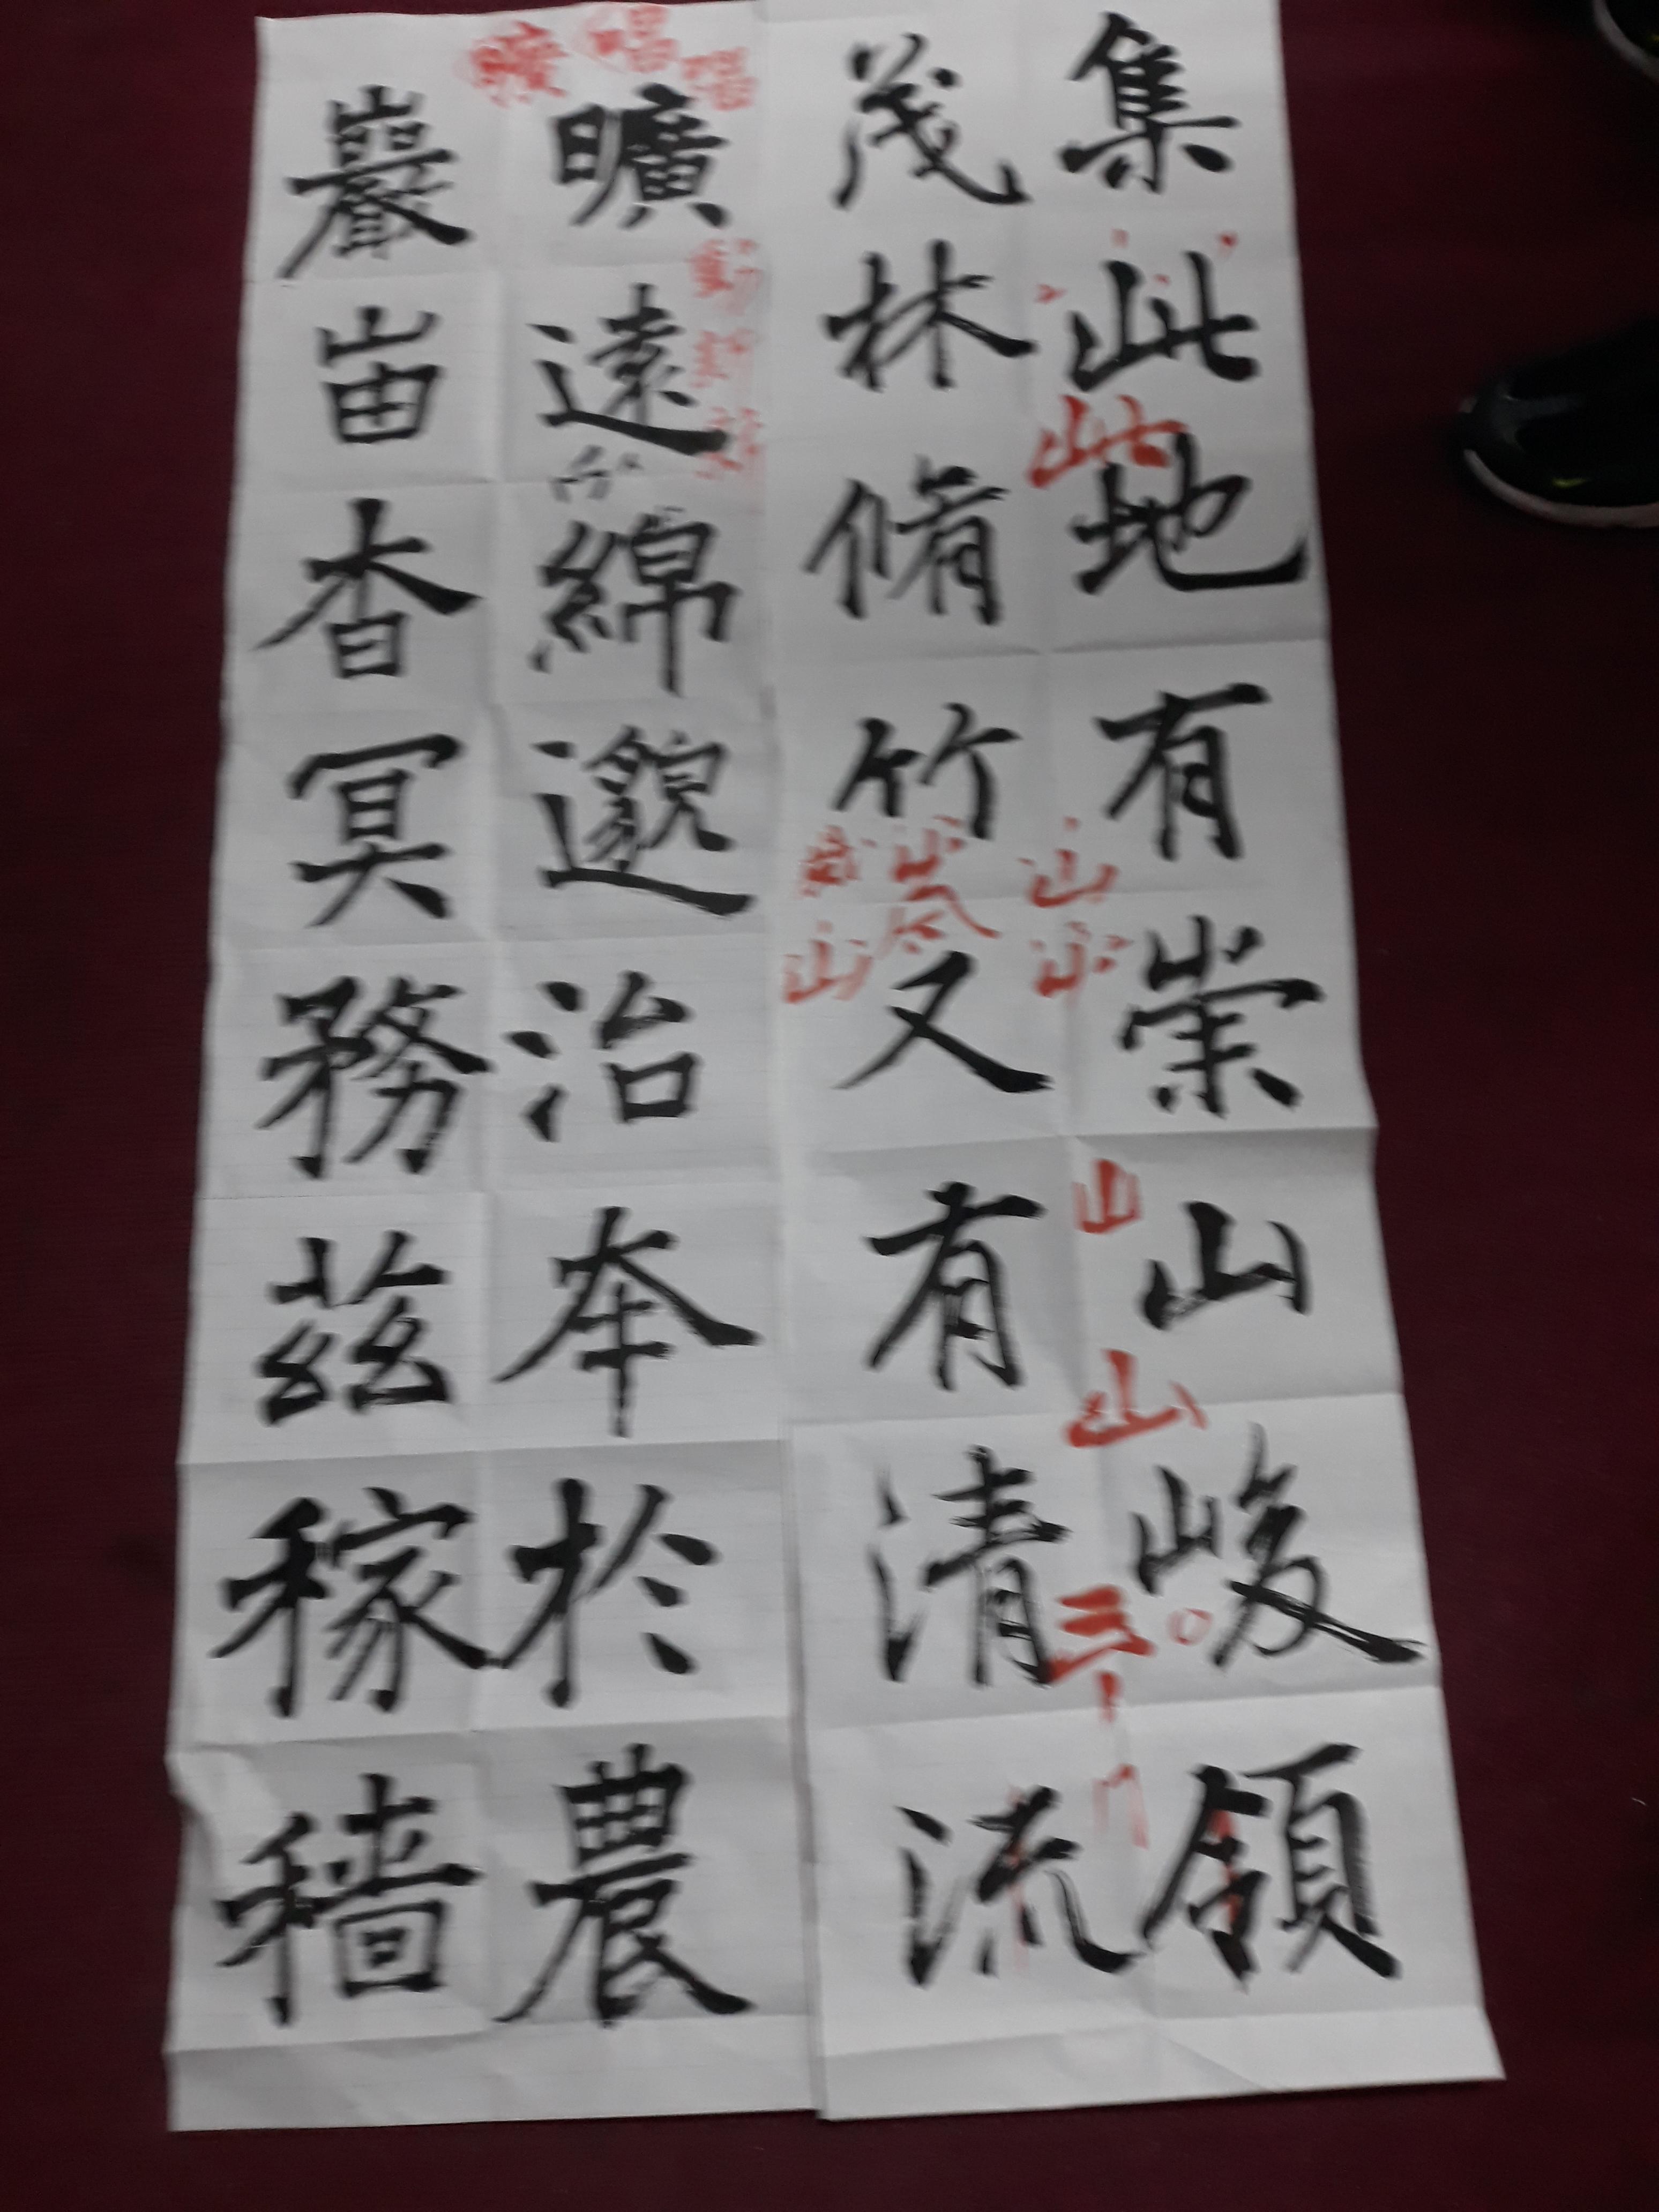 集此地有崇山峻領
茂林脩竹又有清流
曠遠綿邈治夲於農
巖峀杳冥務茲稼穡